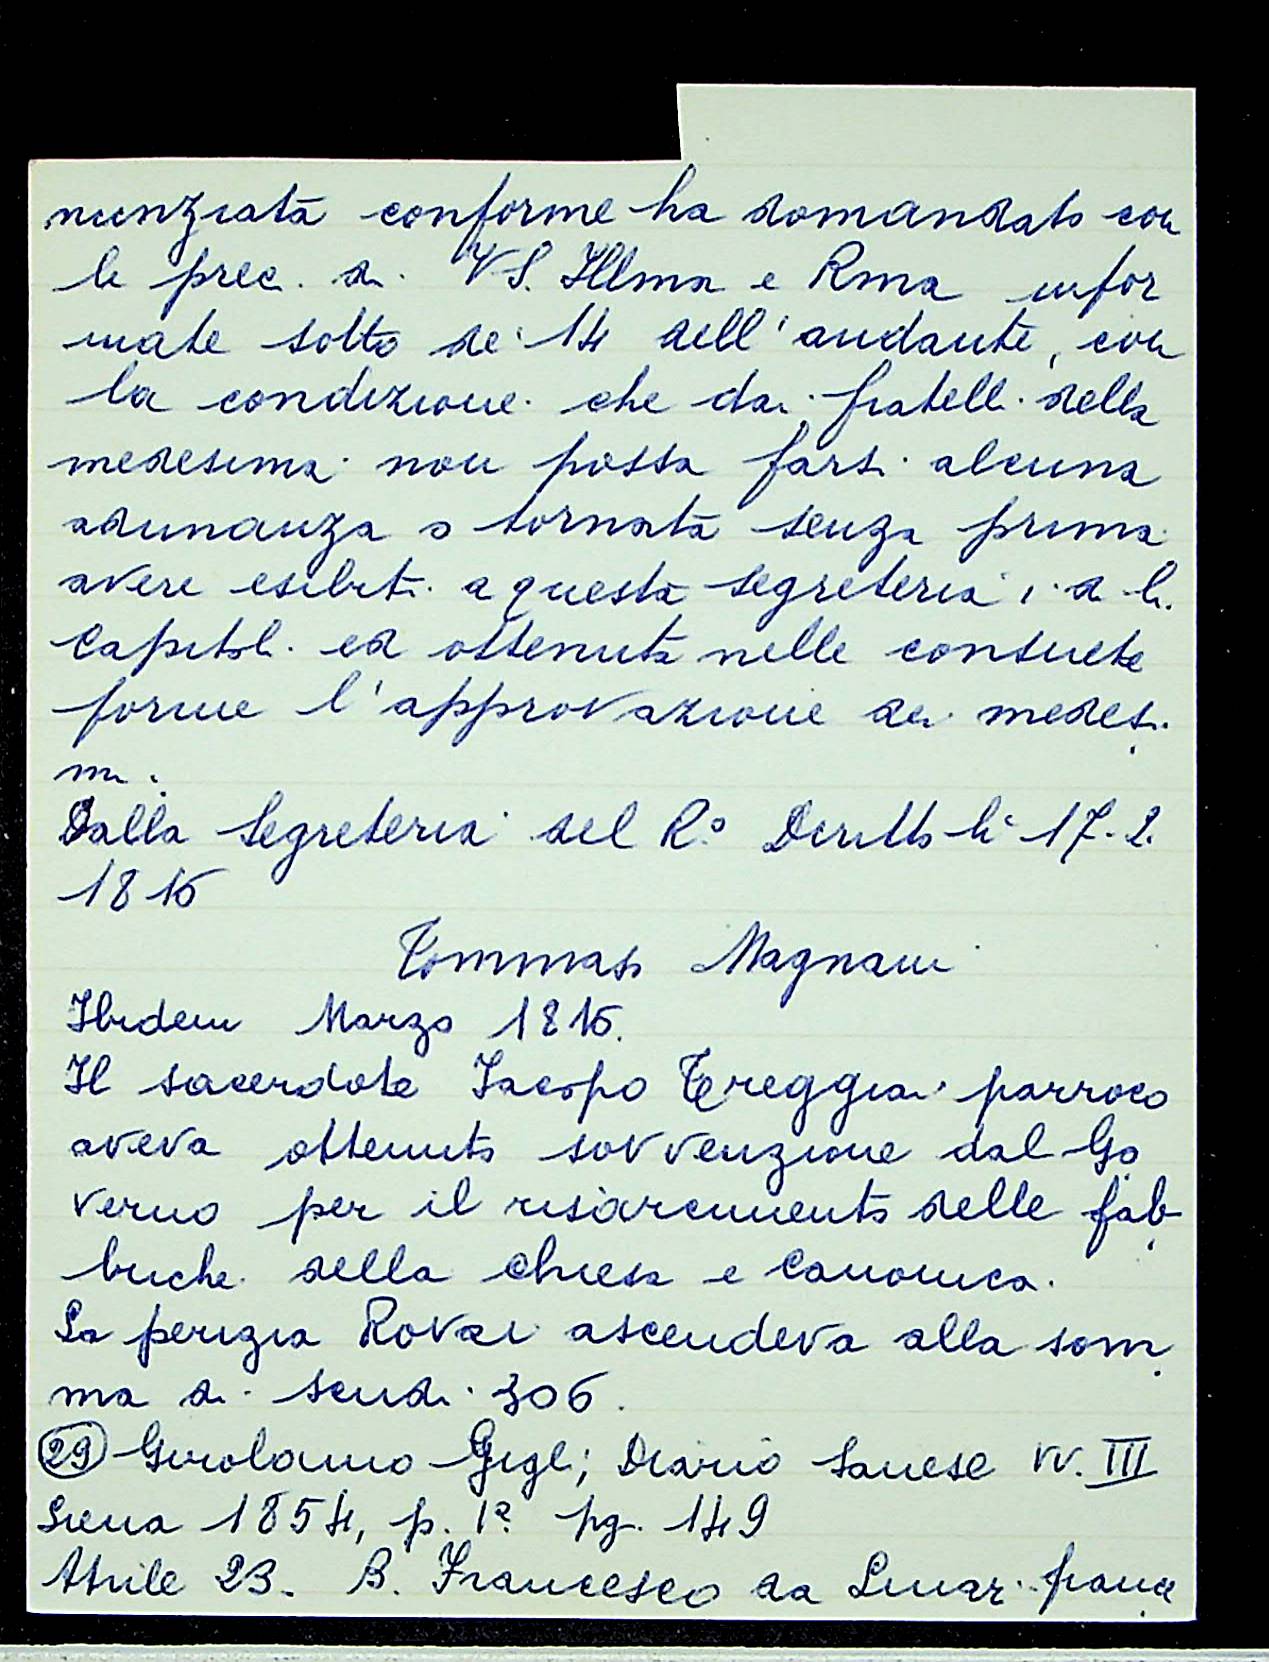 nunziata conforme ha domandato con
le prec. di VS. Illma e Rma infor
mate sotto dì 14 dell'andante, con
la condizione che dai fratelli della
medesima non possa farsi alcuna
adunanza o tornata senza prima
avere esibiti a questa segreteria i di lei
capitoli ed ottenuta nelle consuete
forme l'approvazione dei medesi
mi.
Dalla Segreteria del R.o Diritto li 17-2.
1815
Tommaso Magnani
Ibidem Marzo 1815.
Il sacerdote Jacopo Treggiai parroco
aveva ottenuto sovvenzione dal Go
verno per il risarcimento delle fab
briche della chiesa e canonica.
La perizia Rovai ascendeva alla som
ma di scudi 306.
(29) Girolamo Gigli; Diario Sanese VV. III
Siena 1854, p. 1a pg. 149
Aprile 23. B. Francesco da